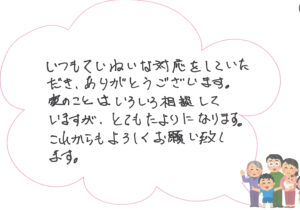 いつもていねいな対応をしていた
だき、ありがとうございます。
家のことはいろいろ相談して
いますが、とてもたよりになります。
これからもよろしくお願い致し
ます。